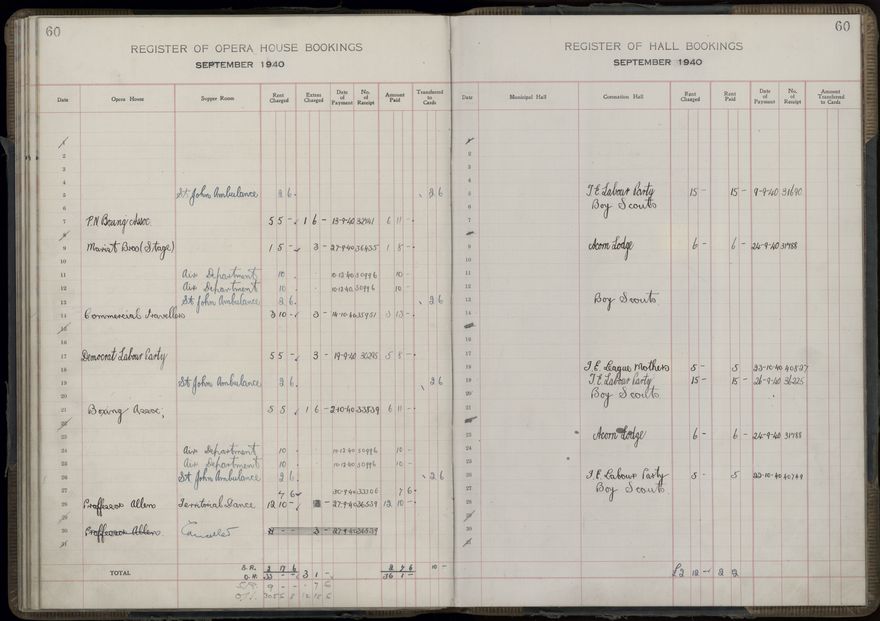 60
REGISTER OF OPERA HOUSE BOOKINGS
SEPTEMBER 1940
Date Opera House Supper Room Rent Charged Extras Charged Date of Payment No. of Receipt Amount Paid Transferred to Cards
1
2
3
4
5 St John Ambulance 2 6. 2 6
6
7 P.N. Boxing Assoc. 5 5 - 1 6 - 13-9-40 6 11 -
8
9 Marist Bros (Stage) 1 5 - 3 - 27-9-40 36455 1 8 -
10
11 Air Department 10 10-12-40 50996 10 -
12 Air Department 10 10-12-40 50996 10 -
13 St John Ambulance 2 6. 2 6
14 Commercial Travellers 3 10 - 3 - 14-10-40 35951 3 13 -
15
16
17 Democrat Labour Party 5 5 - 3 - 19-9-40 5 8 -
18
19 St John Ambulance 2 6. 2 6
20
21 Boxing Assoc, 5 5 1 6 - 2-10-40 33839 6 11 -
22
23
24 Air Department 10 10-12-40 50996 10 -
25 Air Department 10 10-12-40 50996 10
26 St John Ambulance 2 6. 2 6
27 7 6 30-9-40 33306 7 6
28 Proffessor Allens Territorial Dance 12 10 - 27-9-40 36539 12 10 -
29
30 Proffessor Allens Cancelled 3 - 27-9-40 36539
31
TOTAL S.R. 2 17 6 2 7 6 10 -
O.H. 33 - - 3 1 - 36 1 -
60
REGISTER OF HALL BOOKINGS
SEPTEMBER 1940
Date Municipal Hall Coronation Hall Rent Charged Rent Paid Date of Payment No. of Receipt Amount Transferred to Cards
1
2
3
4
5 T.E. Labour Party 15 - 15 - 9-9-40 31690
6 Boy Scouts
7
8
9 Acorn Lodge 6 - 6 - 24-9-40 31788
10
11
12
13 Boy Scouts
14
15
16
17
18 T.E. League Mothers 5 - 5 23-10-40 40827
19 T.E. Labour Party 15 - 15 - 26-9-40 36225
20 Boy Scouts
21
22
23 Acorn Lodge 6 - 6 - 24-9-40 31788
24
25
26 T.E. Labour Party 5 - 5 22-10-40 40749
27 Boy Scouts
28
29
30
31
£2 12 - 2 12